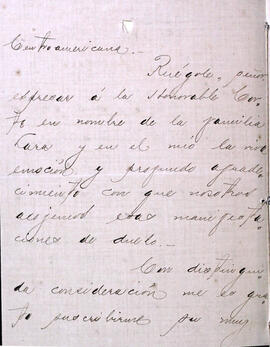 Centroamericana.—
Ruégole, señor,
expresar á la Honorable Cor-
te en nombre de la familia
Lara y en el mío la viva
emoción y profundo agrade-
cimiento con que nosotros
acojemos esas manifesta-
ciones de duelo.—
Con distingui-
da consideración me es gra-
to suscribirme su muy